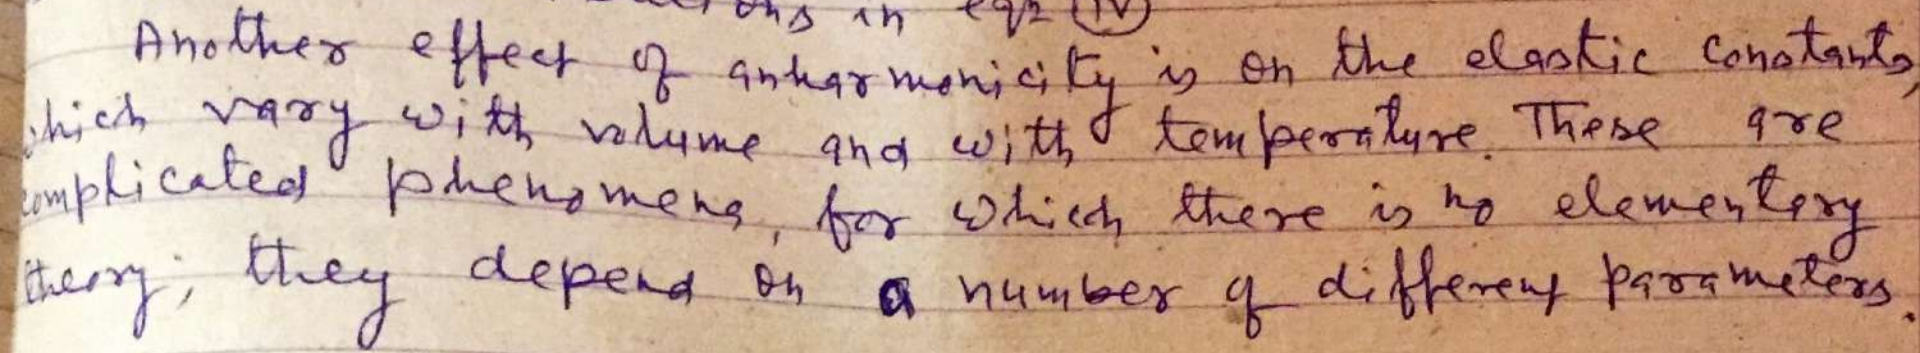 in eqn (IV)
Another effect of anharmonicity is on the elastic constants,
which vary with volume and with temperature. These are
complicated phenomena, for which there is no elementary
theory; they depend on a number of different parameters.